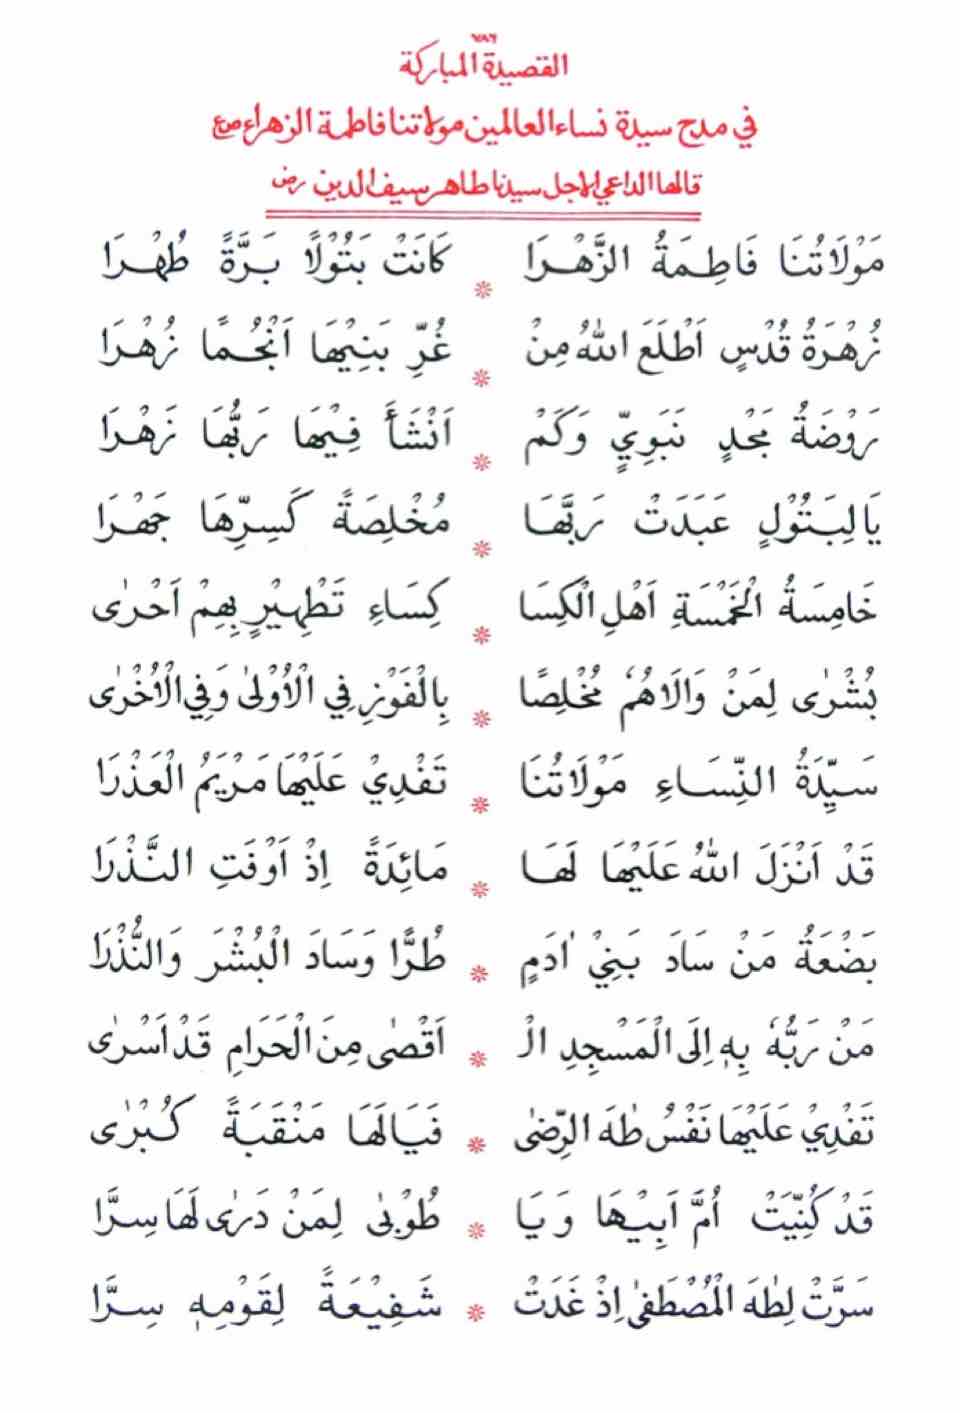 ٧٨٦
القصيدة المباركة
في مدح سيدة نساء العالمين مولاتنا فاطمة الزهراء صع
قالها الداعي الاجل سيدنا طاهر سيف الدين رض
مَوْلَاتُنَا فَاطِمَةُ الزَّهْرَا * كَانَتْ بَتُوْلًا بَرَّةً طُهْرَا
زُهْرَةُ قُدْسٍ اَطْلَعَ اللهُ مِنْ * غُرِّ بَنِيْهَا اَنْجُمًا زُهْرَا
رَوْضَةُ مَجْدٍ نَبَوِيٍّ وَكَمْ * اَنْشَأَ فِيْهَا رَبُّهَا زَهْرَا
يَا لِبَتُوْلٍ عَبَدَتْ رَبَّهَا * مُخْلِصَةً كَسِرِّهَا جَهْرَا
خَامِسَةُ الْخَمْسَةِ اَهْلِ الْكِسَا * كِسَاءِ تَطْهِيْرٍ بِهِمْ اَحْرٰى
بُشْرٰى لِمَنْ وَالَاهُمُ مُخْلِصًا * بِالْفَوْزِ فِي الْاُوْلٰى وَفِي الْاُخْرٰى
سَيِّدَةُ النِّسَاءِ مَوْلَاتُنَا * تَفْدِيْ عَلَيْهَا مَرْيَمُ الْعَذْرَا
قَدْ اَنْزَلَ اللهُ عَلَيْهَا لَهَا * مَائِدَةً اِذْ اَوْفَتِ النَّذْرَا
بَضْعَةُ مَنْ سَادَ بَنِيْ اٰدَمٍ * طُرًّا وَسَادَ الْبُشْرَ وَالنُّذْرَا
مَنْ رَبُّهٗ بِهٖ اِلَى الْمَسْجِدِ الْـ * اَقْصٰى مِنَ الْحَرَامِ قَدْ اَسْرٰى
تَفْدِيْ عَلَيْهَا نَفْسُ طٰهَ الرِّضٰى * فَيَالَهَا مَنْقَبَةً كُبْرٰى
قَدْ كُنِّيَتْ اُمَّ اَبِيْهَا وَيَا * طُوْبٰى لِمَنْ دَرٰى لَهَا سِرَّا
سَرَّتْ لِطٰهَ الْمُصْطَفٰى اِذْ غَدَتْ * شَفِيْعَةً لِقَوْمِهٖ سِرَّا